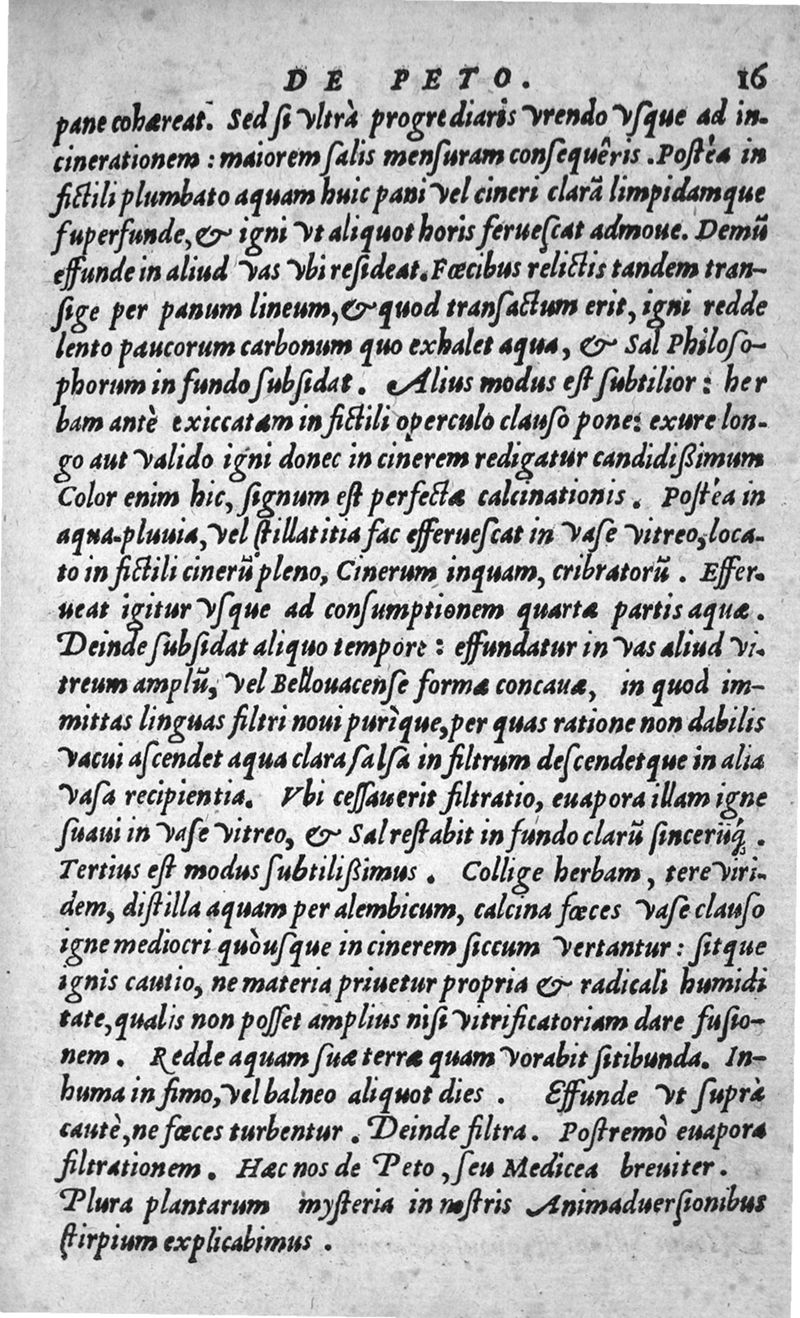 DE PETO. 16
pane cohæreat. Sed si vltrà progrediaris vrendo vsque ad in-
cinerationem : maiorem salis mensuram consequêris . Postèa in
fictili plumbato aquam huic pani vel cineri clarā limpidamque
superfunde, & igni vt aliquot horis feruescat admoue. Demū
effunde in aliud vas vbi resideat. Fœcibus relictis tandem tran-
sige per panum lineum, & quod transactum erit, igni redde
lento paucorum carbonum quo exhalet aqua, & Sal Philoso-
phorum in fundo subsidat . Alius modus est subtilior : her
bam antè exiccatam in fictili operculo clauso pone: exure lon-
go aut valido igni donec in cinerem redigatur candidißimum
Color enim hic, signum est perfectæ calcinationis . Postèa in
aqua-pluuia, vel stillatitia fac efferuescat in vase vitreo, loca-
to in fictili cinerū pleno, Cinerum inquam, cribratorū . Effer-
ueat igitur vsque ad consumptionem quartæ partis aquæ .
Deinde subsidat aliquo tempore : effundatur in vas aliud vi-
treum amplū, vel Bellouacense formæ concauæ, in quod im-
mittas linguas filtri noui purìque, per quas ratione non dabilis
vacui ascendet aqua clara salsa in filtrum descendetque in alia
vasa recipientia. Vbi cessauerit filtratio, euapora illam igne
suaui in vase vitreo, & Sal restabit in fundo clarū sincerūq́ .
Tertius est modus subtilißimus . Collige herbam, tere viri-
dem, distilla aquam per alembicum, calcina fœces vase clauso
igne mediocri quòusque in cinerem siccum vertantur : sitque
ignis cautio, ne materia priuetur propria & radicali humidi
tate, qualis non posset amplius nisi vitrificatoriam dare fusio-
nem . Redde aquam suæ terræ quam vorabit sitibunda. In-
huma in fimo, vel balneo aliquot dies . Effunde vt suprà
cautè, ne fœces turbentur . Deinde filtra. Postremò euapora
filtrationem . Hæc nos de Peto, seu Medicea breuiter.
Plura plantarum mysteria in nostris Animaduersionibus
stirpium explicabimus .